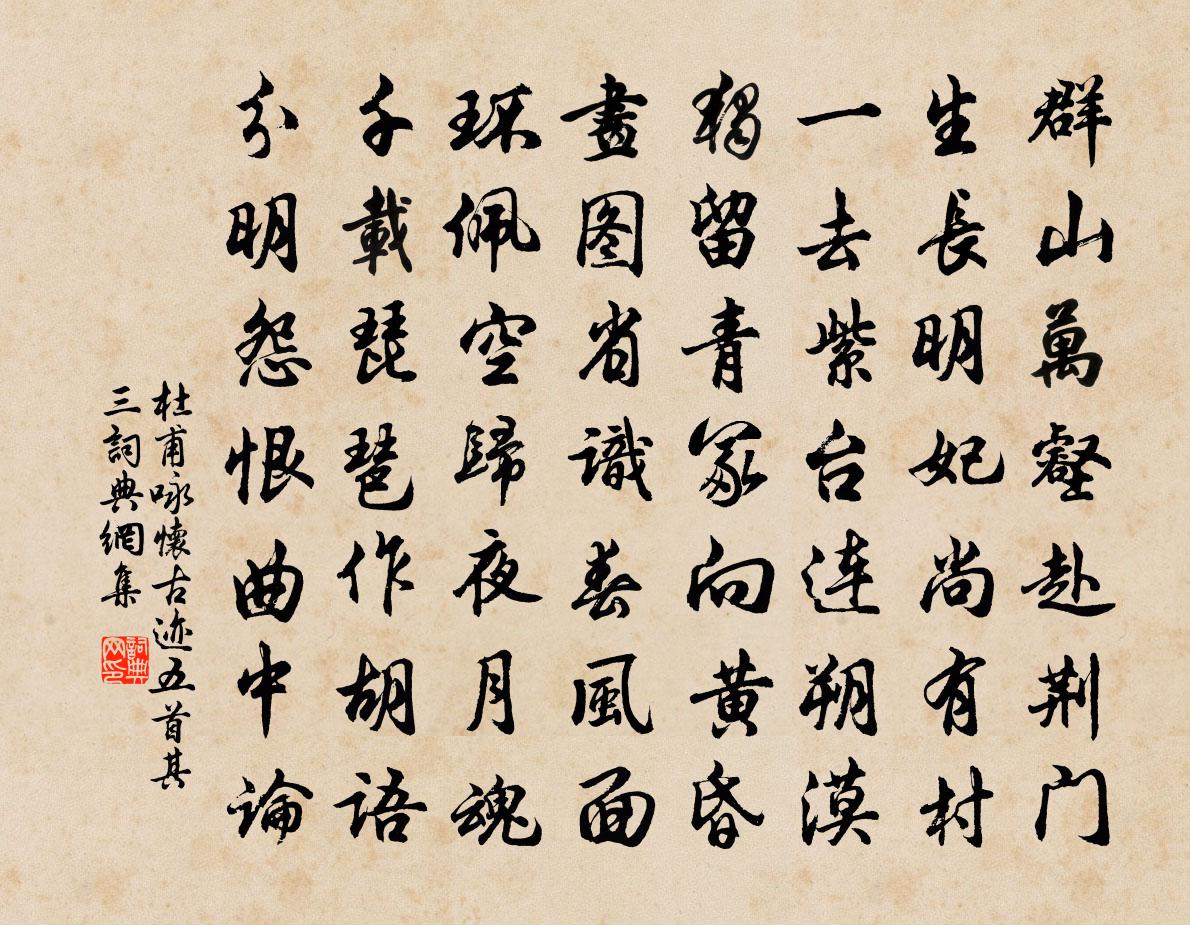 群山萬壑赴荆门
生長明妃尚有村
一去紫台连朔漠
獨留青冢向黄昏
畫图省識春風面
環佩空歸夜月魂
千載琵琶作胡語
分明怨恨曲中論
杜甫咏懷古迹五首其
三詞典網集
詞典
网印